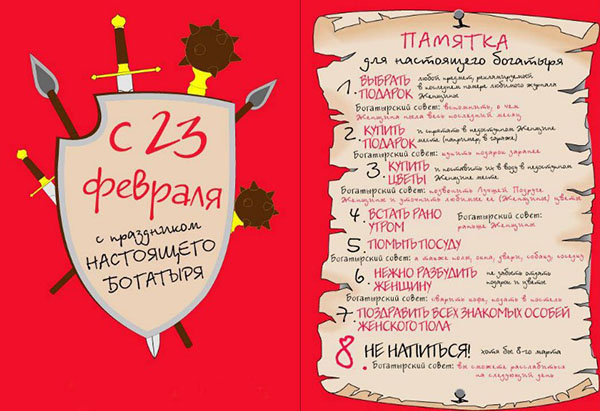 с 23
февраля
с праздником
НАСТОЯЩЕГО
БОГАТЫРЯ
ПАМЯТКА
для настоящего богатыря
1. ВЫБРАТЬ ПОДАРОК любой предмет, рекламируемый
в последнем номере любимого журнала
Женщины
Богатырский совет: вспомнить, о чем
Женщина пела весь последний месяц
2. КУПИТЬ ПОДАРОК и спрятать в недоступном Женщине
месте (например, в гараже)
Богатырский совет: купить подарок заранее
3. КУПИТЬ ЦВЕТЫ и поставить их в воду в недоступном
Женщине месте
Богатырский совет: позвонить Лучшей Подруге
Женщины и уточнить любимые ее (Женщины) цветы
4. ВСТАТЬ РАНО
УТРОМ
Богатырский совет:
раньше Женщины
5. ПОМЫТЬ ПОСУДУ
Богатырский совет: а также полы, окна, двери, собаку, соседку
6. НЕЖНО РАЗБУДИТЬ
ЖЕНЩИНУ
не забыть отдать
подарок и цветы
Богатырский совет: сварить кофе, подать в постель
7. ПОЗДРАВИТЬ ВСЕХ ЗНАКОМЫХ ОСОБЕЙ
ЖЕНСКОГО ПОЛА
8 НЕ НАПИТЬСЯ! хотя бы 8-го марта
Богатырский совет: вы сможете расслабиться
на следующий день